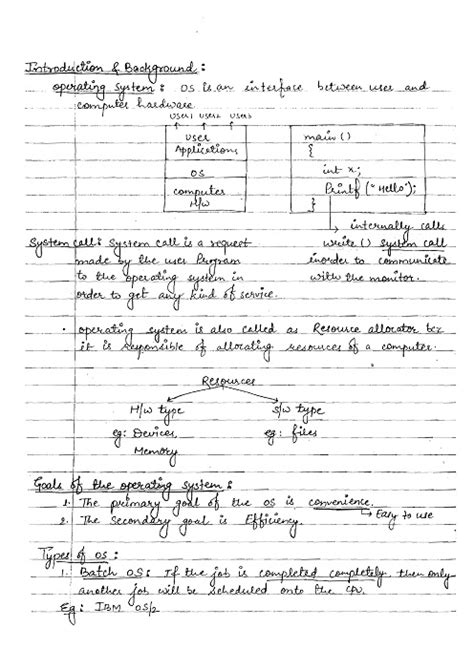 Introduction & Background :
operating system : OS is an interface between user and
computer hardware
user1 user2 user3
user
Applications
OS
computer
H/w
main ()
{
int x;
Printf ("Hello");
}
internally calls
write () system call
inorder to communicate
with the monitor.
System call : System call is a request
made by the user Program
to the operating system in
order to get any kind of service.
• operating system is also called as Resource allocator bcz
it is responsible of allocating resources of a computer.
Resources
H/w type
eg: Devices,
Memory
S/w type
eg: files
Goals of the operating system :
1. The primary goal of the OS is convenience.
Easy to use
2. The Secondary goal is Efficiency.
Types of OS :
1. Batch OS : If the job is completed completely then only
another job will be scheduled onto the CPU.
Eg: IBM OS/2